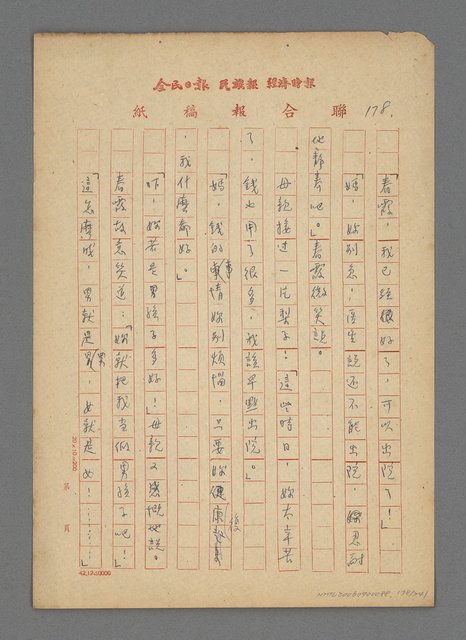 全民日報 民族報 經濟時報
聯合報稿紙
178.
「春霞，我已經很好了，可以出院了！」
「媽，妳別急！醫生說还不能出院，妳忍耐
地靜養吧。」春霞微笑說。
母親接过一片梨子！「這些時日，妳太辛苦
了，錢也用了很多，我該早點出院。」
「媽，錢的事情妳別煩惱，只要妳健康恢復
，我什麼都好。」
「咋，妳若是男孩子多好！」母親又感慨地說。
春霞故意笑道：「妳就把我当做男孩子吧！」
「這怎麼成，男就是男，女就是女！………」
20×10=200
第 頁
42.12.50000